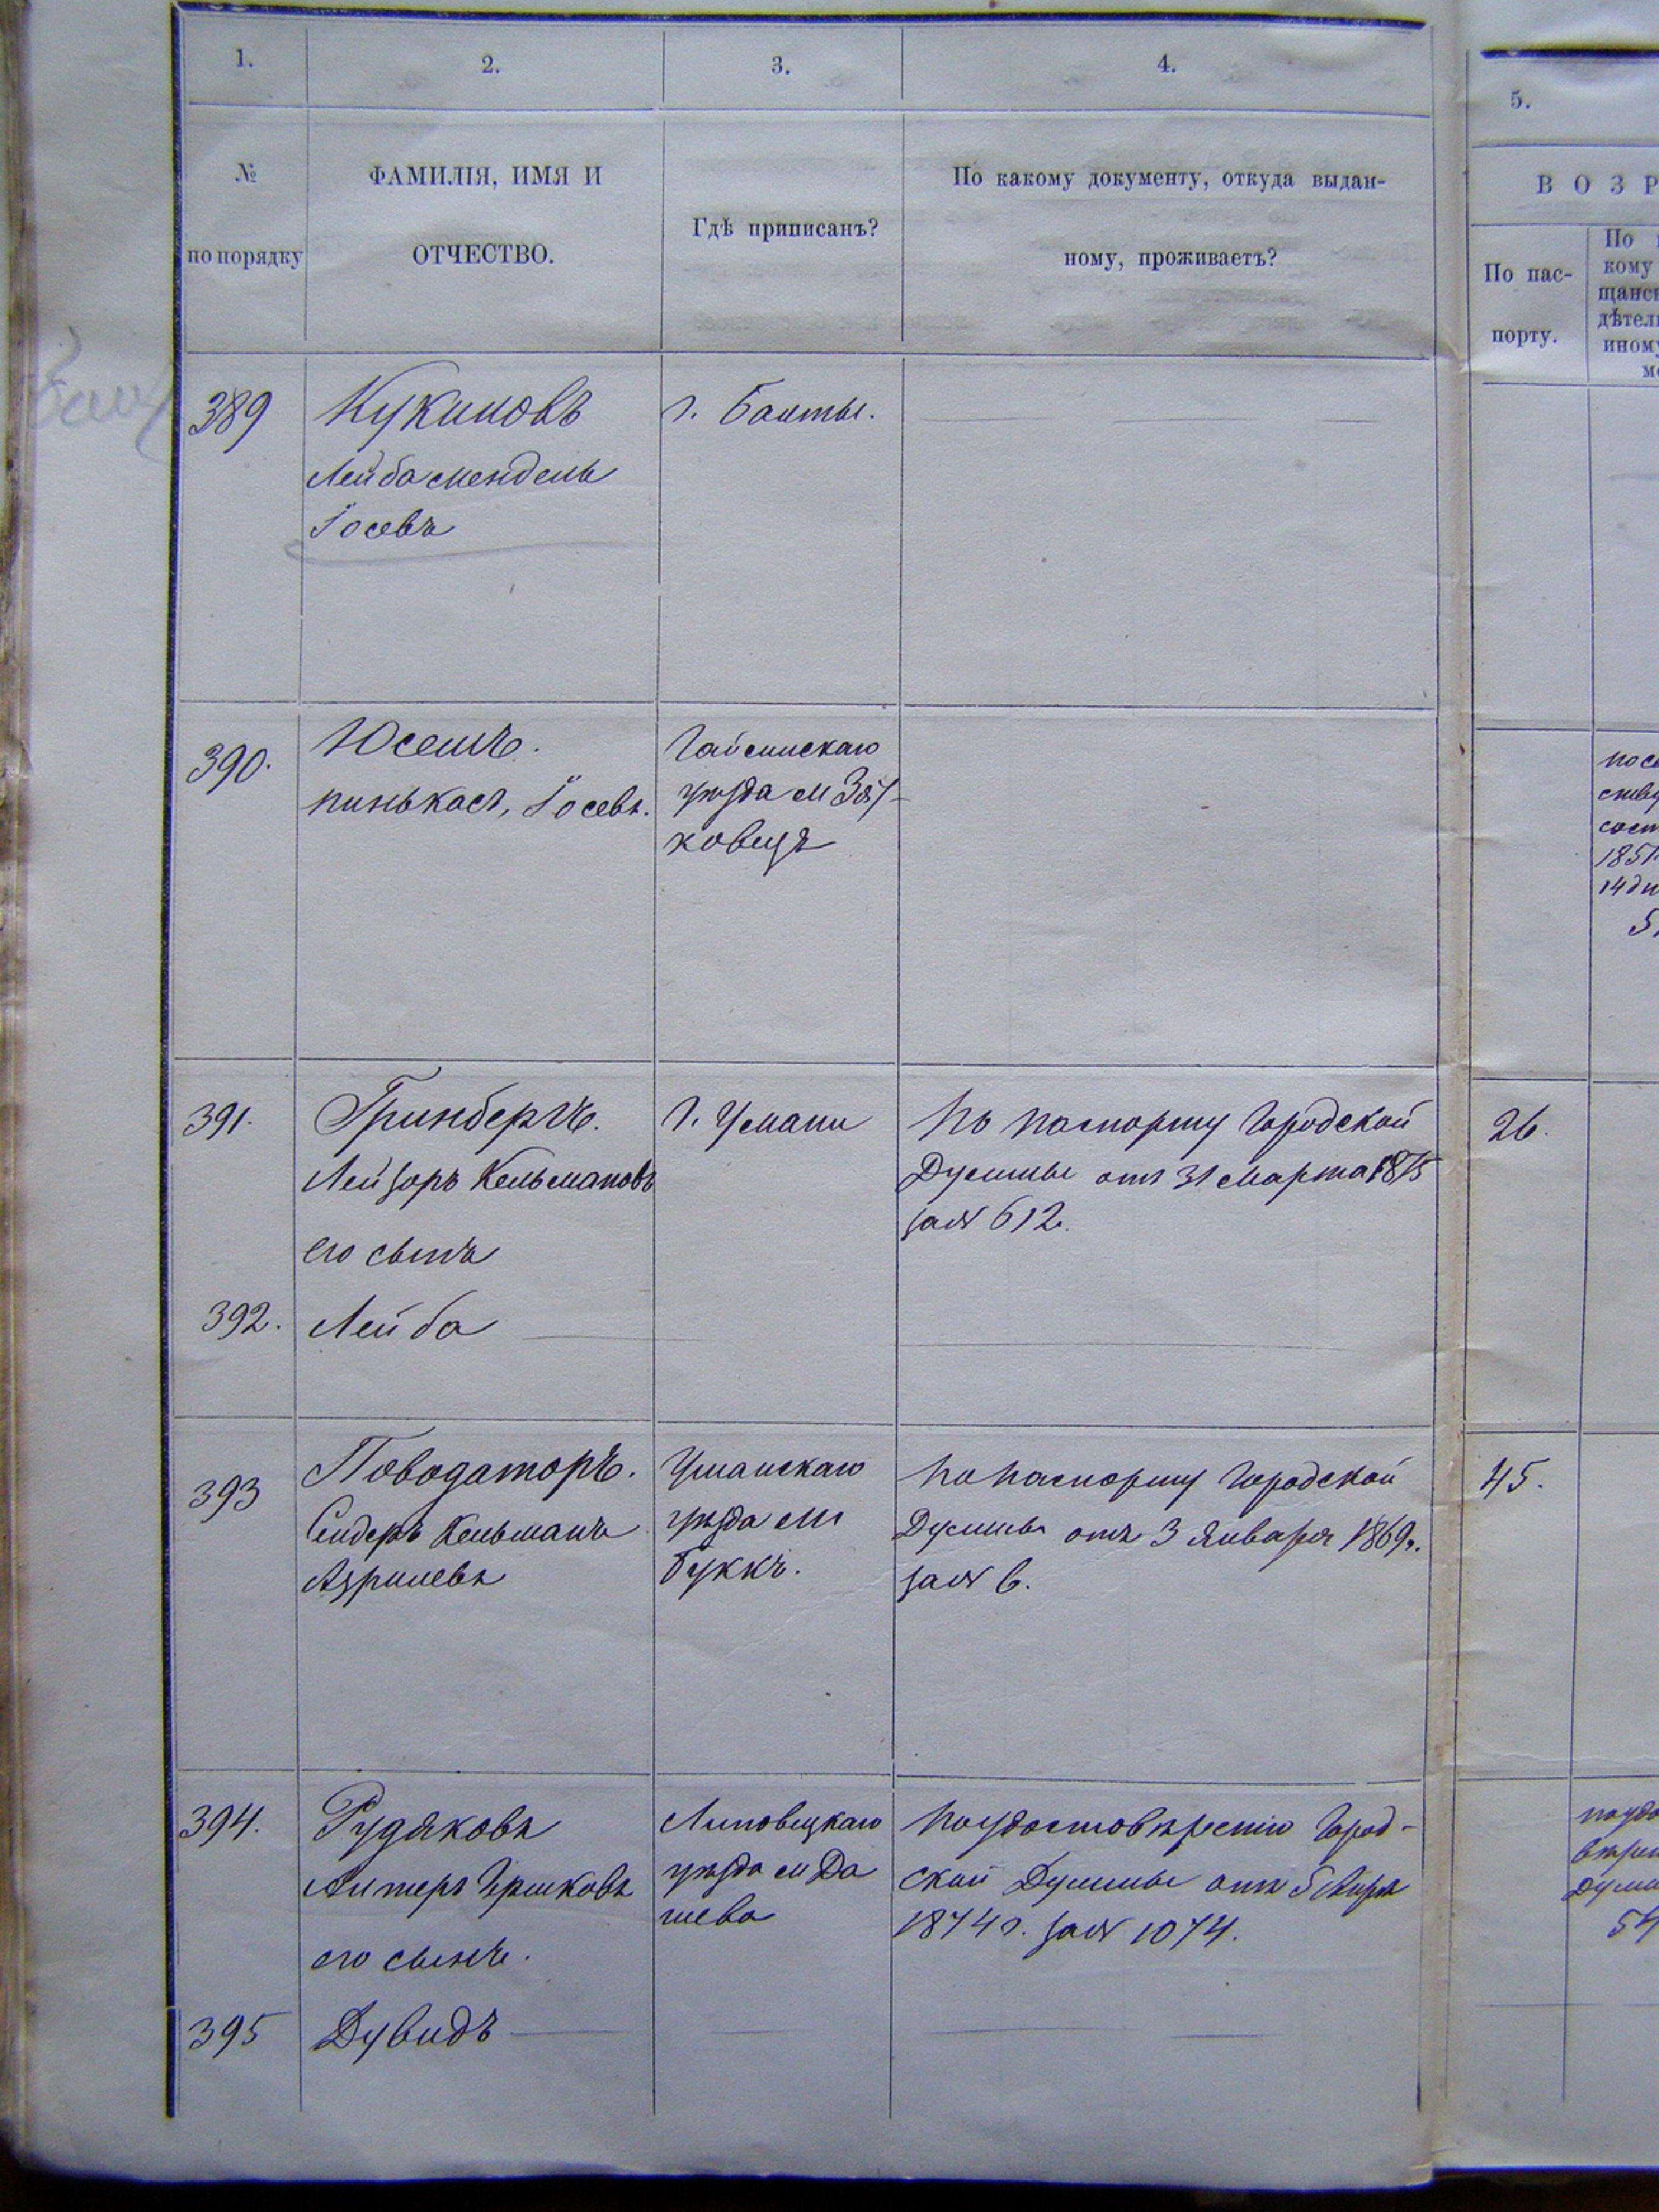 1.
2.
3.
4.
5.
№
по порядку
ФАМИЛІЯ, ИМЯ И
ОТЧЕСТВО.
Гдѣ приписанъ?
По какому документу, откуда выдан-
ному, проживаетъ?
ВОЗР
По пас-
порту.
По
кому
щанск
дѣтел
иному
389
Кукиловъ
Лейба Мендель
Іосевъ
г. Балты.
390.
Юсемъ.
Пинькасъ, Іосевъ.
Гайсинскаго
уѣзда м
ковцъ
1851
14 дн
391.
Гринбергъ.
Лейзоръ Кельмановъ
его сынъ
г. Умани
По паспорту Городской
Думы отъ 31 Марта 1875
за № 612.
26.
392.
Лейба
393
Поводаторъ.
Сендеръ Кельманъ
Азрилевъ
Уманскаго
уѣзда м
Буккъ.
По паспорту Городской
Думы отъ 3 Января 1869г.
за № 6.
45.
394.
Рудяковъ
Алтеръ Гершковъ
его сынъ.
Липовецкаго
уѣзда м Да
шева
По удостовѣренію Город-
ской Думы отъ 5 Апрѣ
1874 г. за № 1074.
54
395
Дувидъ